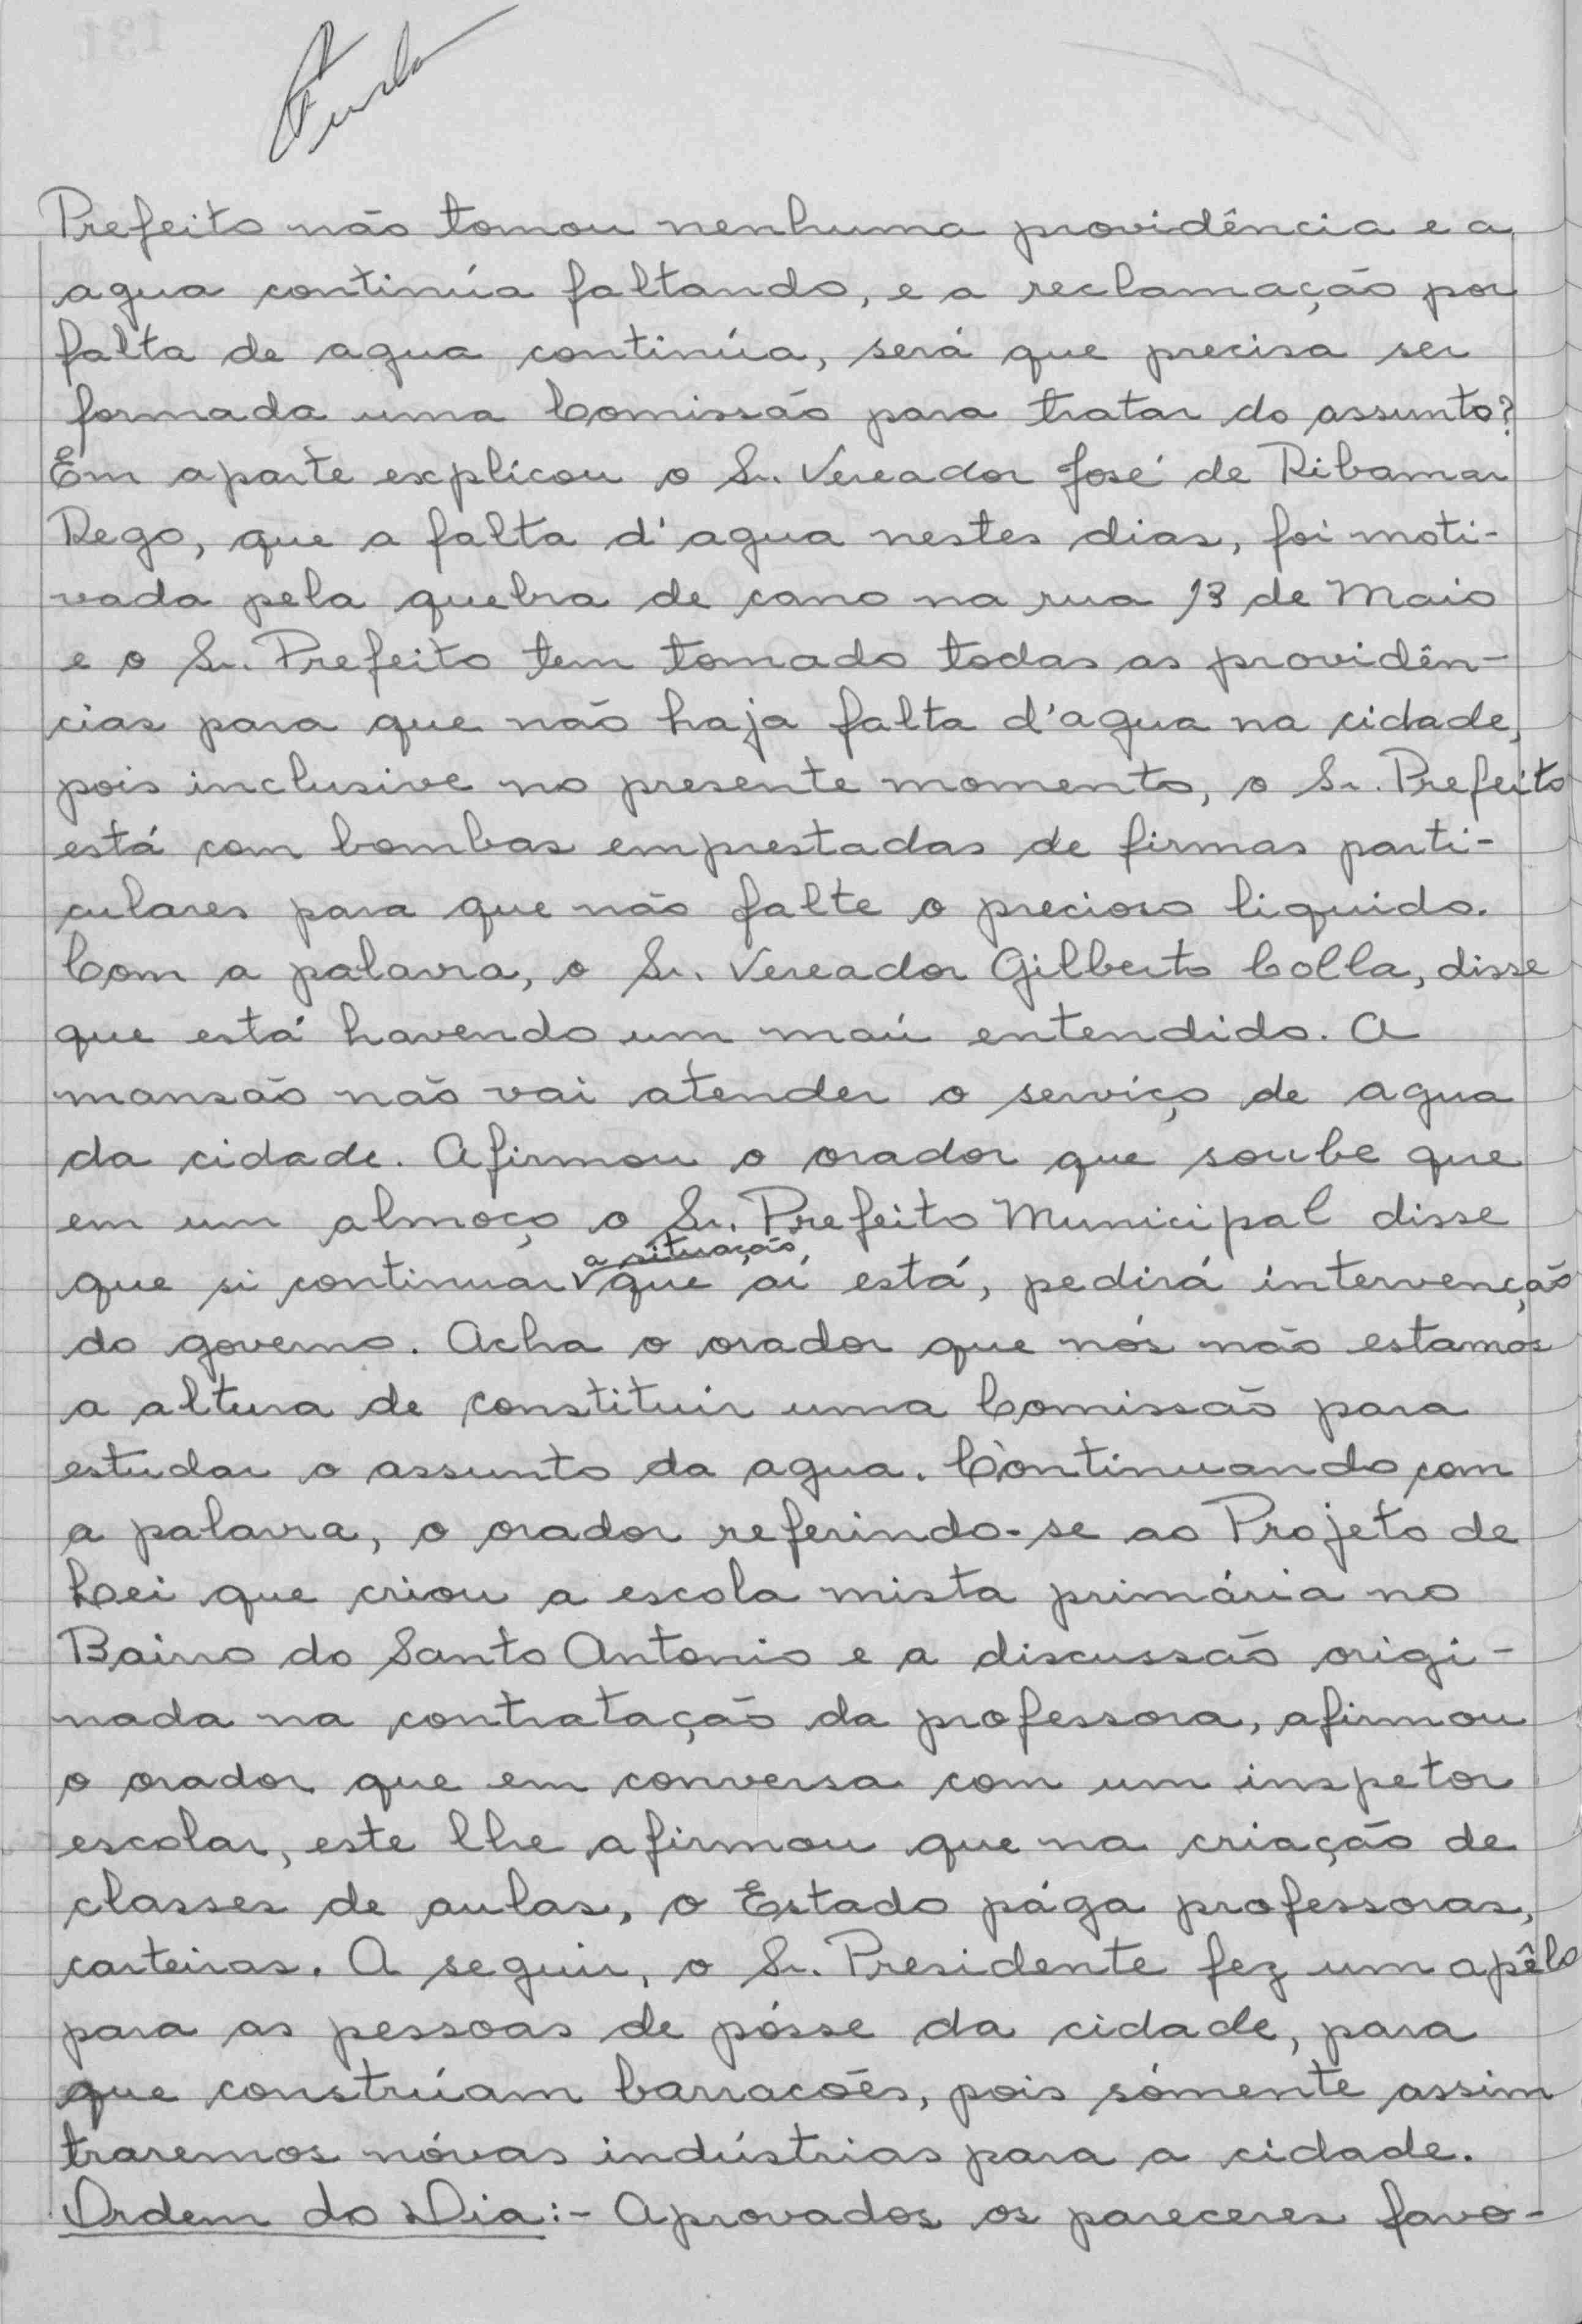 Prefeito não tomou nenhuma providência e a
agua continúa faltando, e a reclamação por
falta de agua continúa, será que precisa ser
formada uma Comissão para tratar do assunto?
Em aparte explicou o Sr. Vereador José de Ribamar
Rego, que a falta d'agua nestes dias, foi moti-
vada pela quebra de cano na rua 13 de Maio
e o Sr. Prefeito tem tomado todas as providên-
cias para que não haja falta d'agua na cidade,
pois inclusive no presente momento, o Sr. Prefeito
está com bombas emprestadas de firmas parti-
culares para que não falte o precioso liquido.
Com a palavra, o Sr. Vereador Gilberto Colla, disse
que está havendo um maú entendido. A
mansão não vai atender o serviço de agua
da cidade. Afirmou o orador que soube que
em um almoço o Sr. Prefeito Municipal disse
a situação,
que si continuar que aí está, pedirá intervenção
do governo. Acha o orador que nós não estamos
a altura de constituir uma Comissão para
estudar o assunto da agua. Continuando com
a palavra, o orador referindo-se ao Projeto de
Lei que criou a escola mista primária no
Bairro do Santo Antonio e a discussão origi-
nada na contratação da professora, afirmou
o orador que em conversa com um inspetor
escolar, este lhe afirmou que na criação de
classes de aulas, o Estado pága professoras,
carteiras. A seguir, o Sr. Presidente fez um apêlo
para as pessoas de pósse da cidade, para
que construíam barracões, pois sómente assim
traremos nóvas indústrias para a cidade.
Ordem do Dia:- Aprovados os pareceres favo-